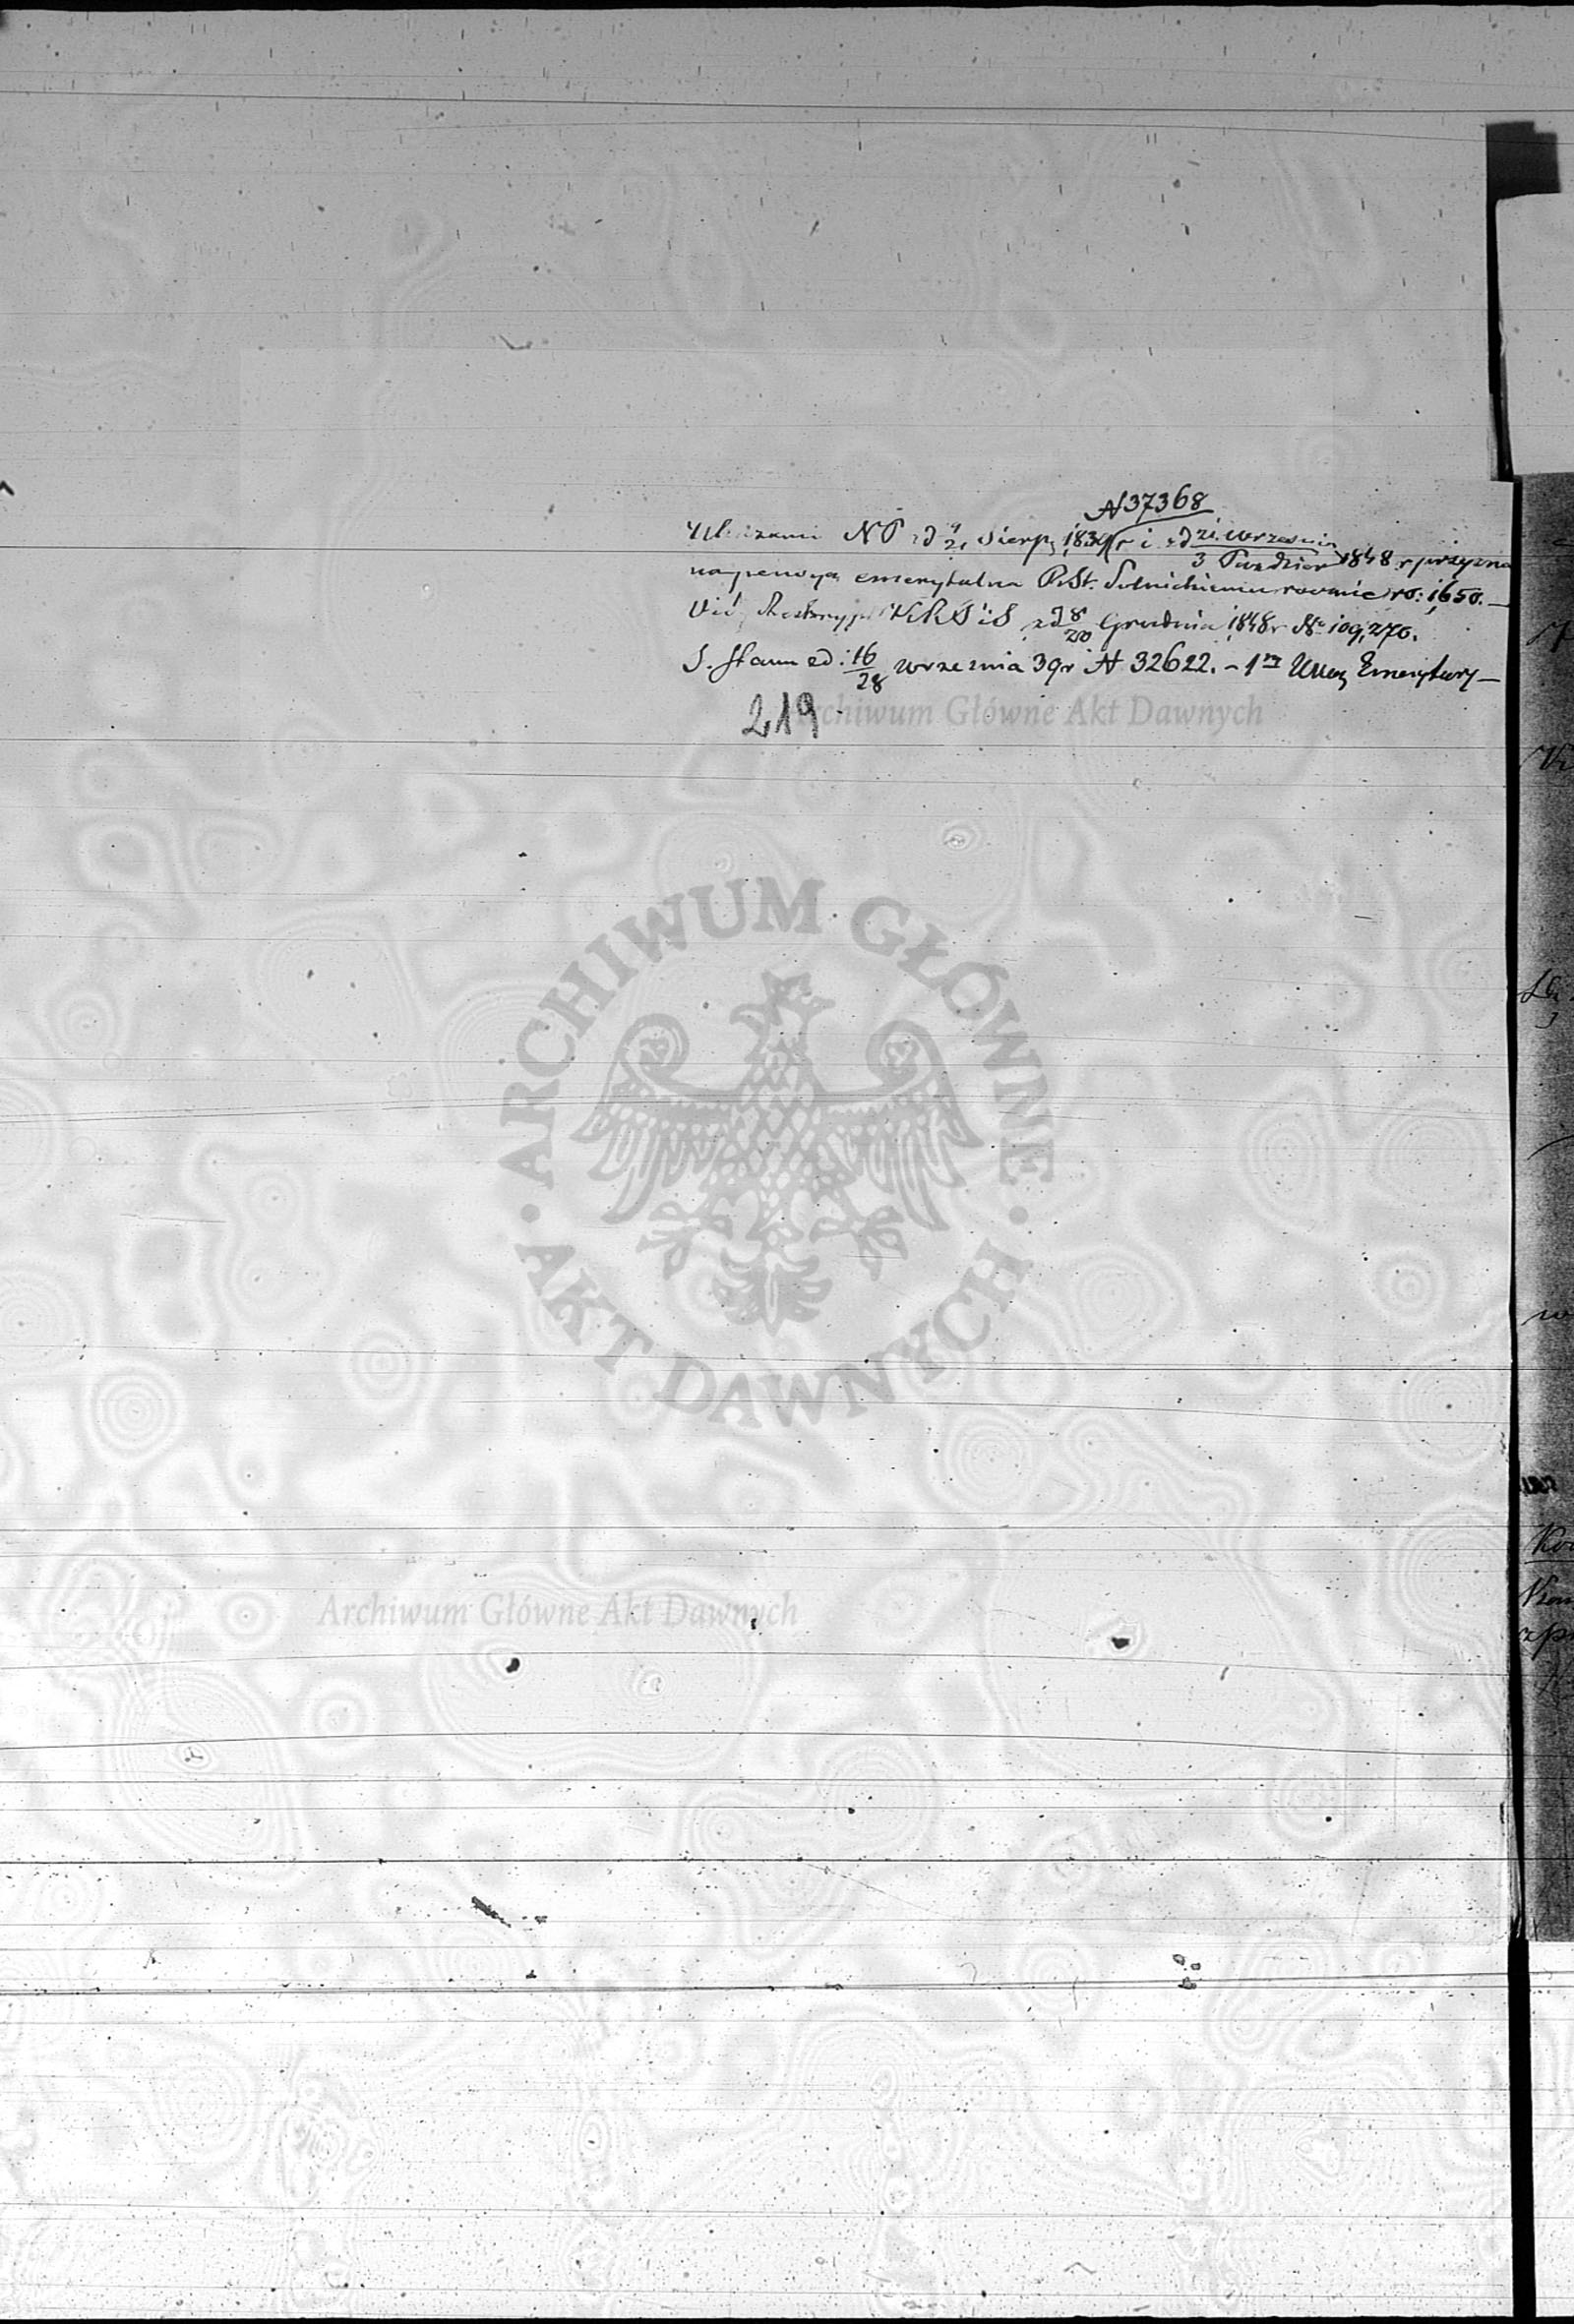 N 37368
NP z d 9/21 Sierp 1839 r i z d 21 Września/3 Paździer 1848 r przyzna
na pensya emerytalna P. St. rocznie rs: 1650. —
Vid, Reskrypt KRS i S z d 8/20 Grudnia 1848 r No 109,270.
S. Stanu z d: 16/28 września 39 r N 32622. – 1ra Emerytury —
219
Archiwum Główne Akt Dawnych
ARCHIWUM GŁÓWNE AKT DAWNYCH
Archiwum Główne Akt Dawnych